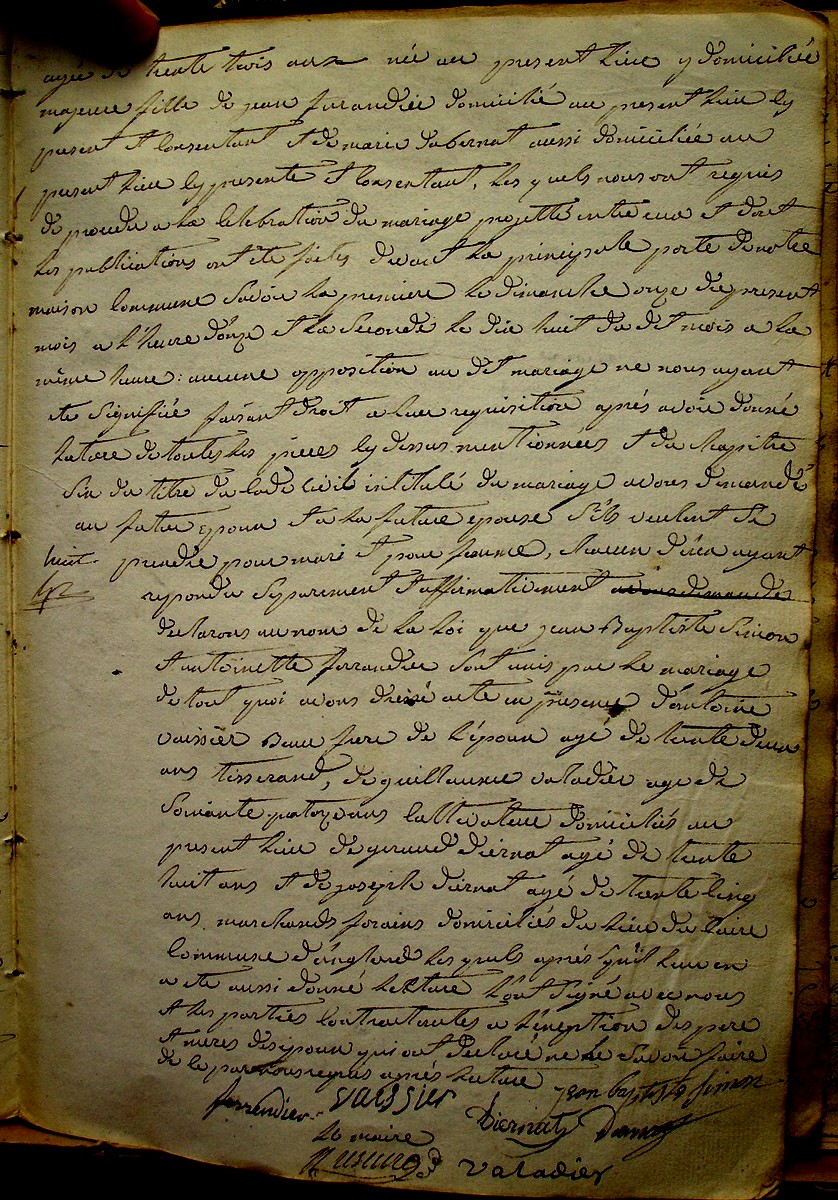 agée de trente trois ans née au present lieu y domiciliée
majeure fille de jean farandier domicilié au present lieu Cy
present et Consentant et de marie dabernat aussi domiciliée au
present lieu Cy presente et Consentant, Les quels nous ont requis
de proceder a La Celebration du mariage projetté entre eux et dont
Les publications ont eté faites devant La principale porte de notre
maison Commune Savoir La premiere Le dimanche onze du present
mois a L'heure d'onze et La Seconde Le dix huit du dit mois a La
même heure : aucune opposition au dit mariage ne nous ayant
eté Signifiée faisant droit a Leur requisition aprés avoir donné
Lecture de toutes Les pieces Cy dessus mentionnées et du Chapitre
Six du titre du Code Civil intitulé du mariage avons demandé
au futur epoux et a La future epouse S'ils veulent Se
huit prendre pour mari et pour femme, Chacun d'eux ayant
repondu Separement et affirmativement avons demandés
declarons au nom de La Loi que jean Baptiste Simon
et antoinette farrandier Sont unis par Le mariage
de tout quoi avons dressé acte en presence d'antoine
vaissier Beau frere de L'époux agé de trente deux
ans tisserand, de guillaume valadier agé de
Soixante quatorze ans Cultivateur domiciliés au
present Lieu de geraud diernat agé de trente
huit ans et de joseph diernat agé de trente Cinq
ans marchands forains domiciliés du Lieu du Caire
Commune d'anglards Les quels aprés qu'il Leur en
a eté aussi donné Lecture L'ont Signé avec nous
et Les parties Contractantes a L'éxeption des pere
et meres des epoux qui ont declaré ne Le Savoir faire
de Ce par nous requis aprés Lecture
jean baptiste Simon
farrendier vaissier
Diernat
Le maire
valadier